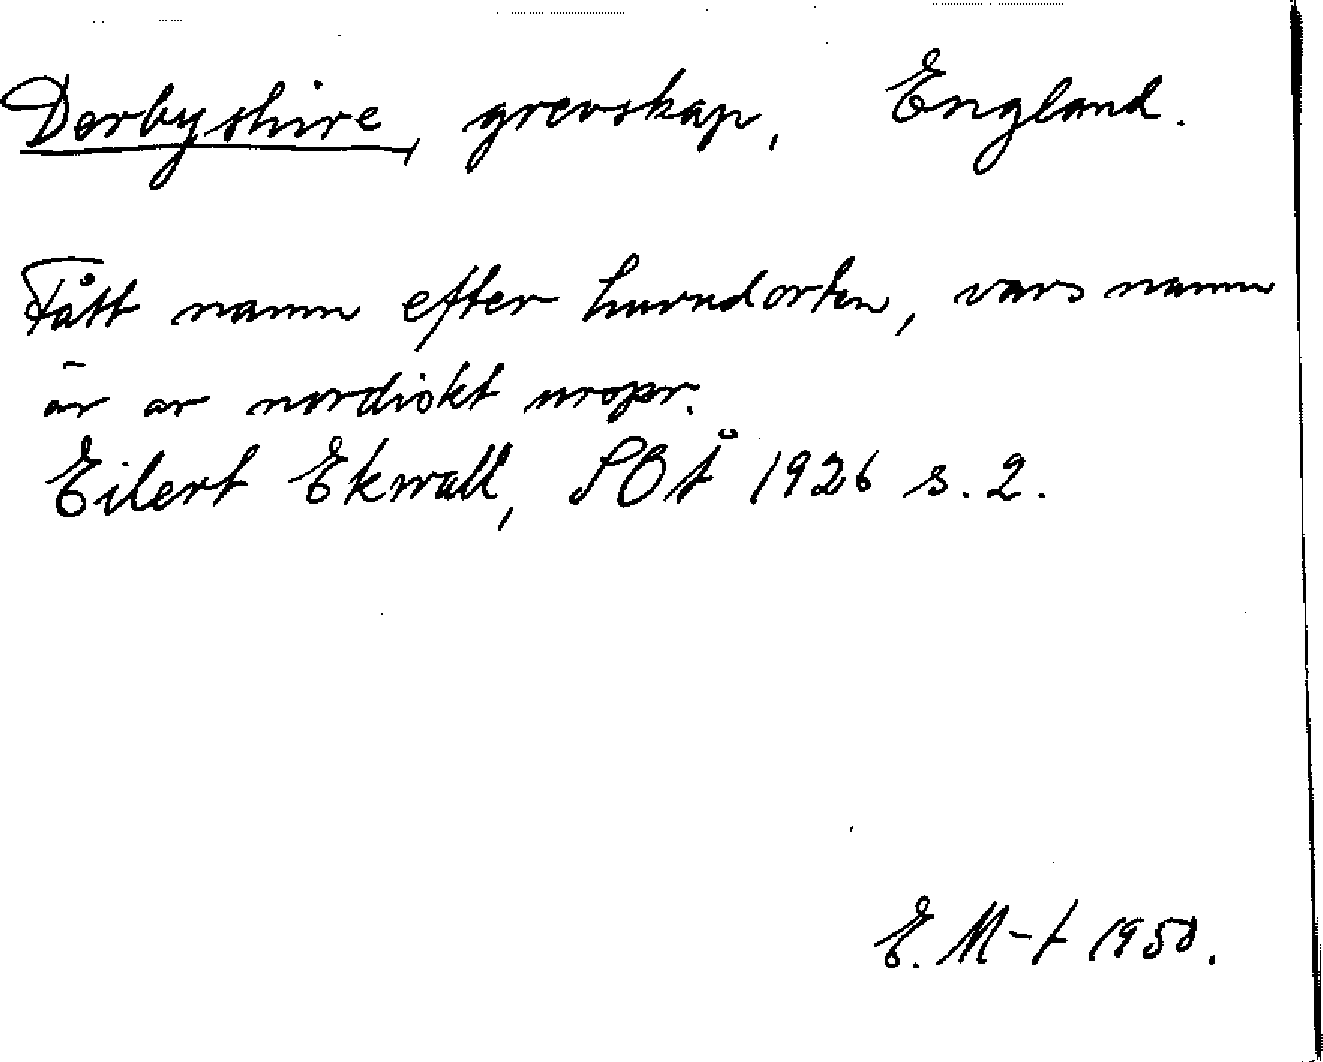 Derbyshire, grevskap, England.
Fått namn efter huvudorten, vars namn
är av nordiskt urspr.
Eilert Ekwall, SOÅ 1926 s. 2.
E. M-t 1950.